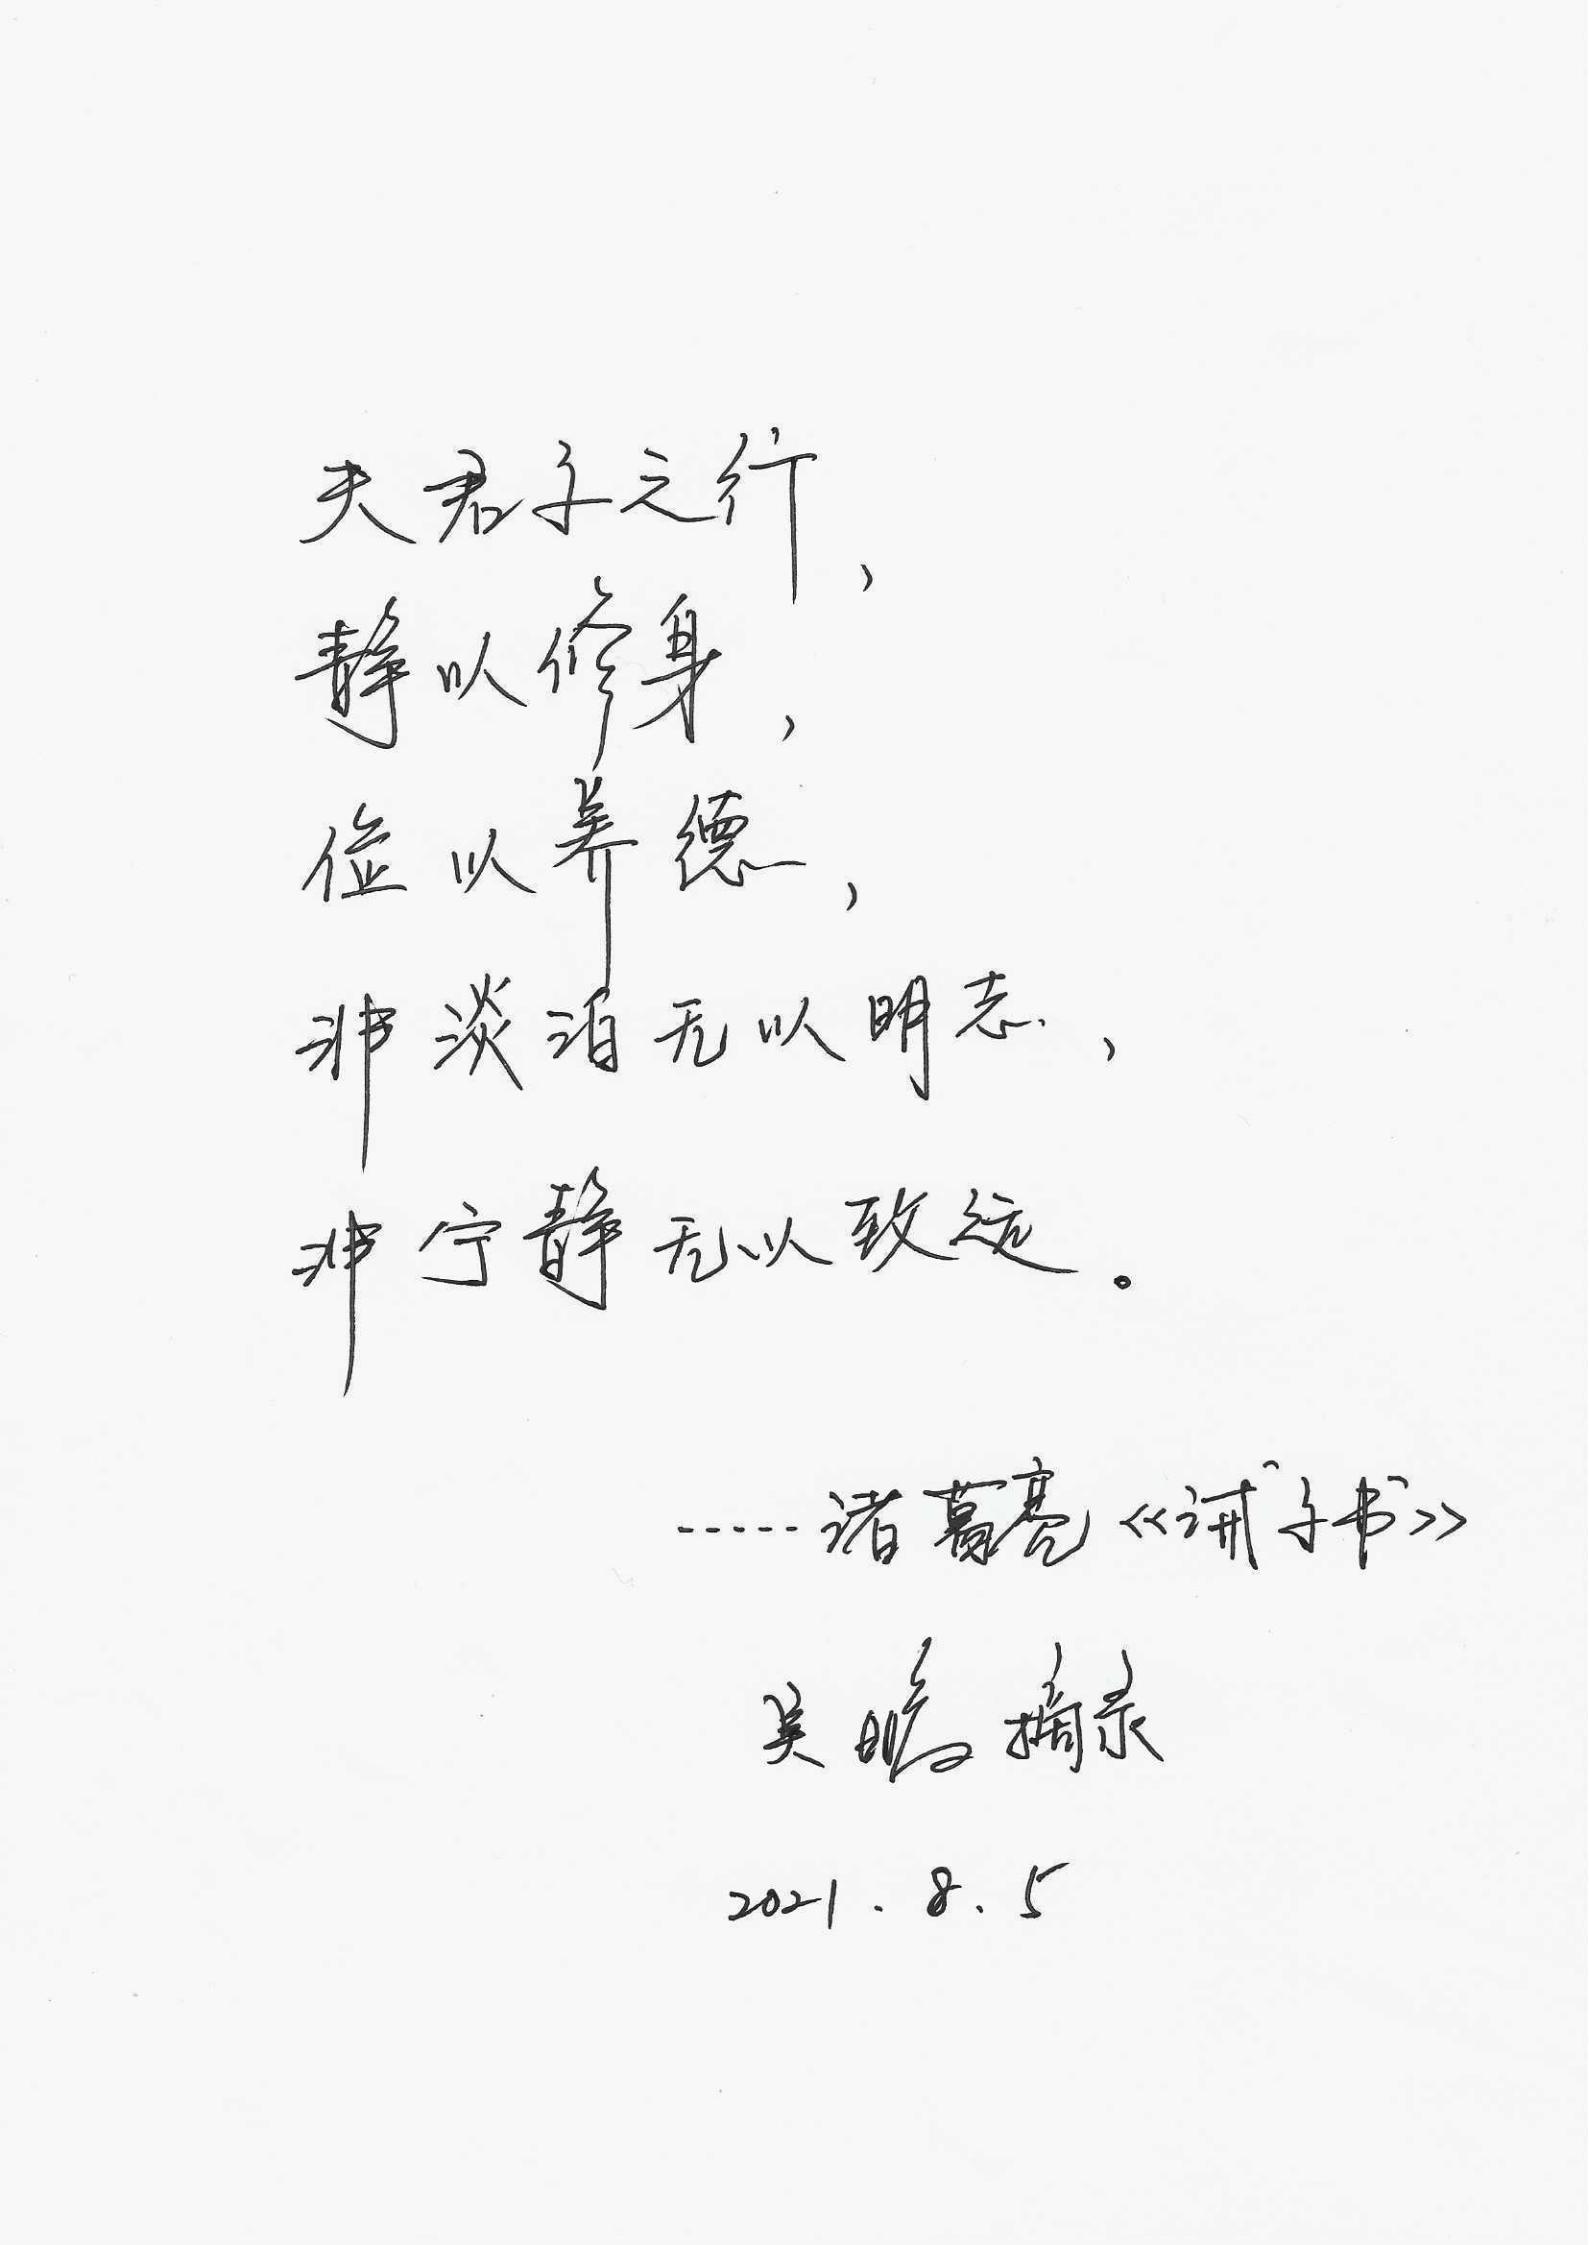 夫君子之行，
静以修身，
俭以养德，
非淡泊无以明志，
非宁静无以致远。
-----诸葛亮《诫子书》
吴 摘录
2021.8.5